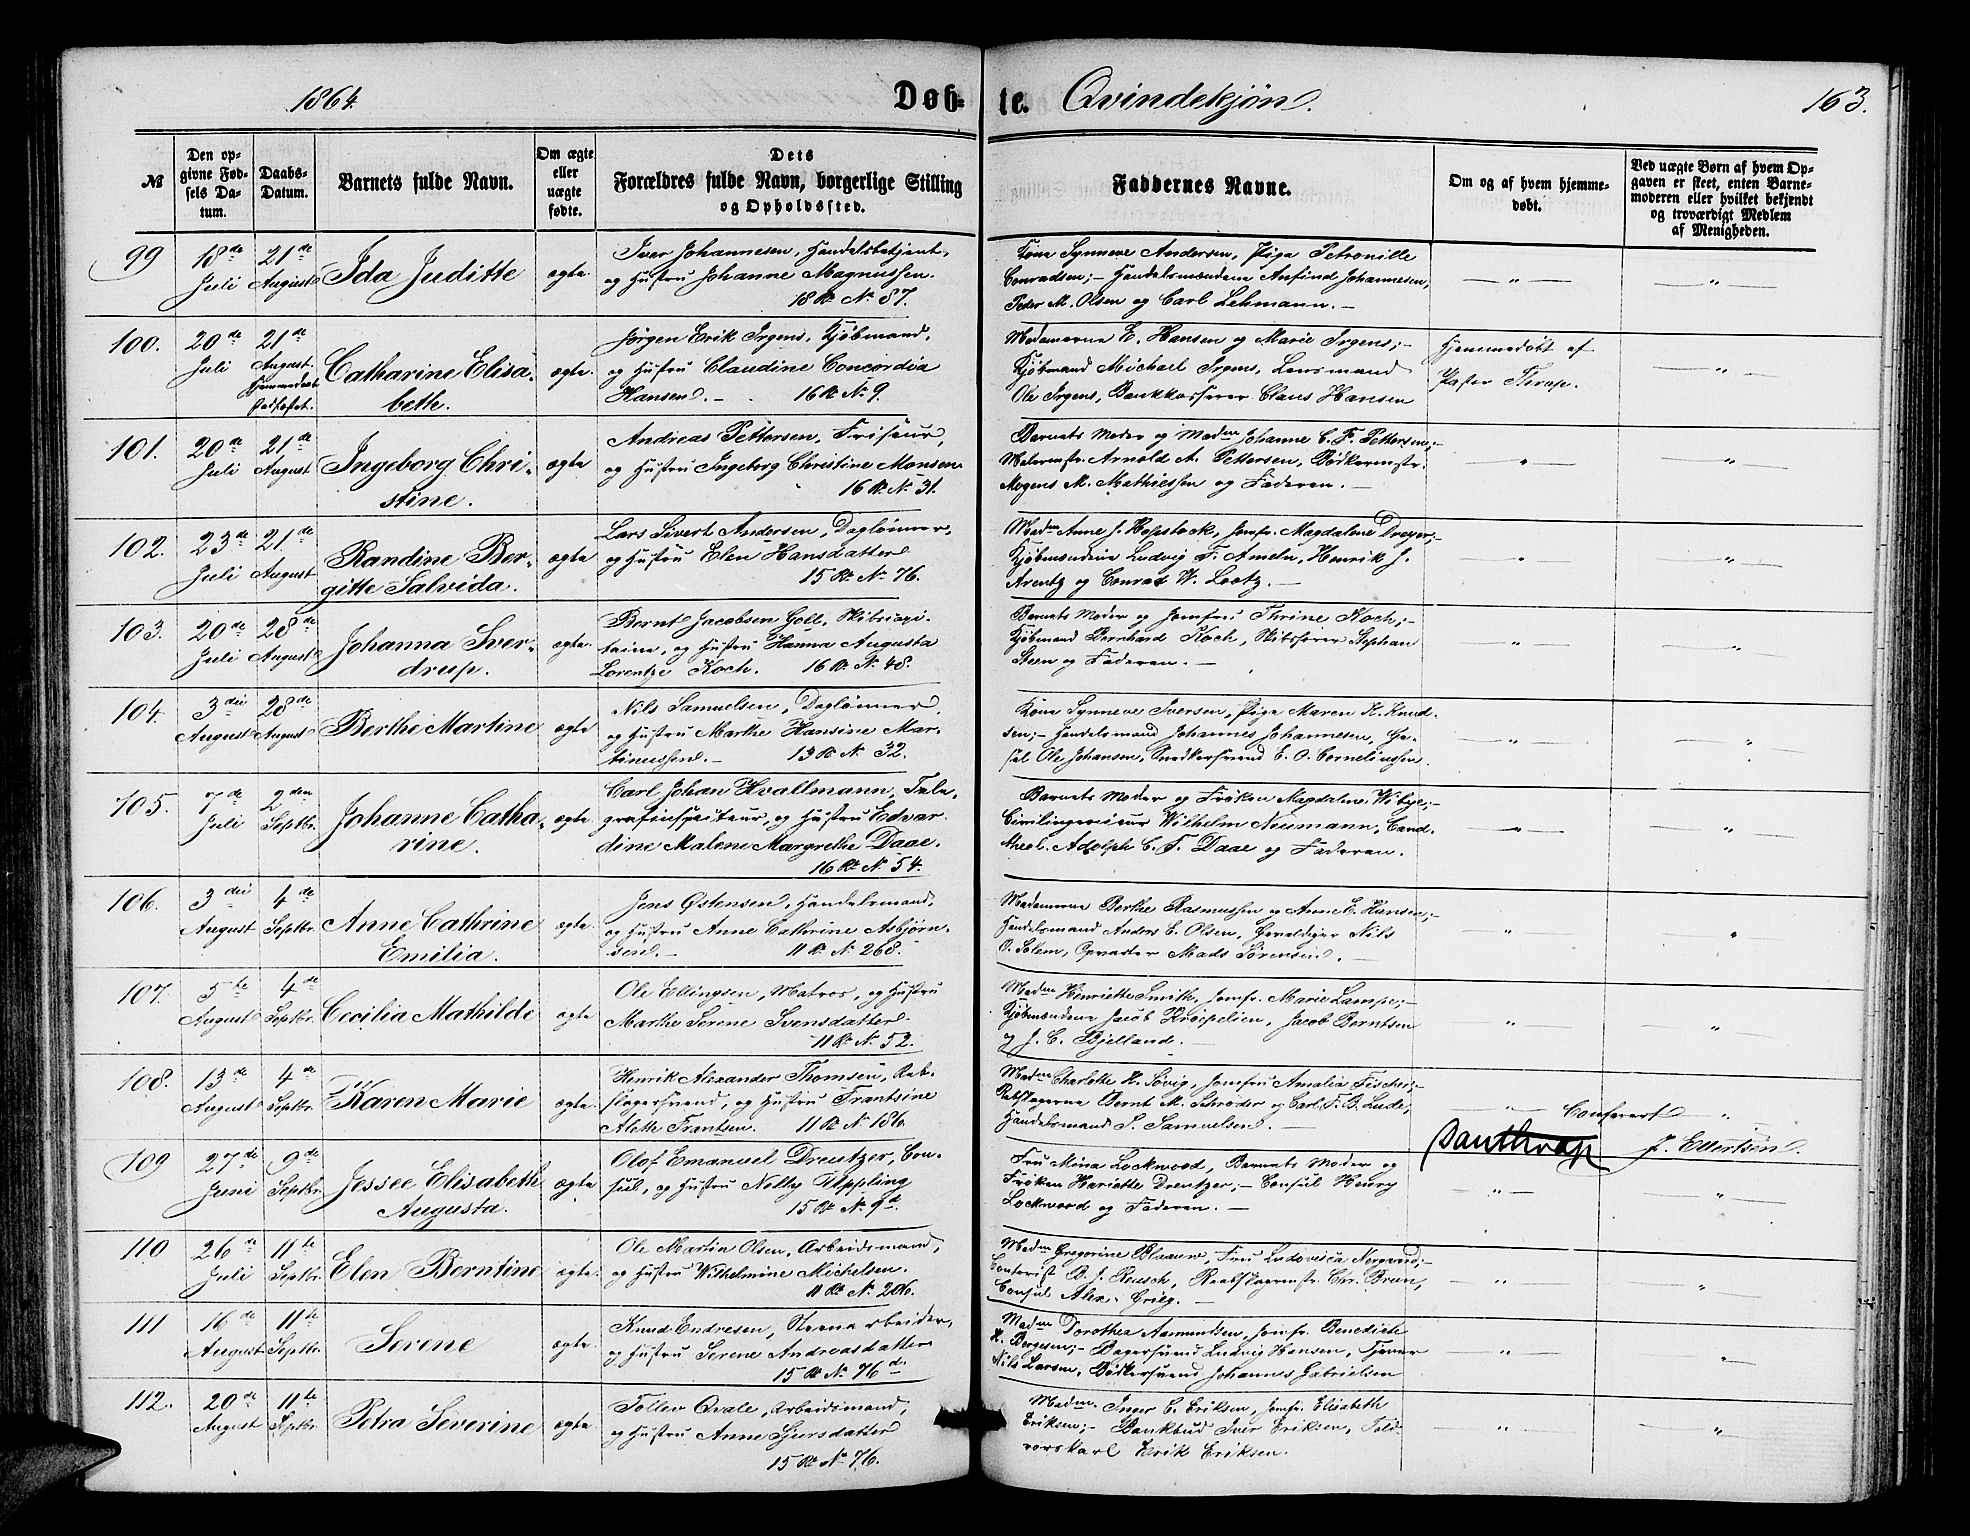 1864.
Døb-
te.
Qvindekjøn.
163.
№
Den op-
givne Fød-
sels Da-
tum.
Daabs-
Datum.
Barnets fulde Navn.
Om ægte
eller
uægte
fødte.
Dets
Forældres fulde Navn, borgerlige Stilling
og Opholdssted.
Faddernes Navne.
Om og af hvem hjemme-
døbt.
Ved uægte Børn af hvem Op-
gaven er skeet, enten Barne-
moderen eller hvilket bekjendt
og troværdigt Medlem
af Menigheden.
99
18de
Juli
21de
August
Ida Juditte
ægte
Iver Johannesen, Handelsbetjent
og Hustru Johanne Magnussen.
18 R. N. 87.
Kone Synneve Andersen, Pige Petronille
Conradsen; - Handelsmændene Amfind Johannesen,
Peder M. Olsen og Carl Lehmann. -
- " -
- " -
100.
20de
Juli
21de
August.
Hjemmedaab
stadfæstet.
Catharine Elisa-
beth.
ægte.
Jørgen Erik Irgens, Kjøbmand,
og Hustru Claudine Concordia
Hansen. - 16 R. N. 9.
Madamerne E. Hansen og Marie Irgens; -
Kjøbmand Michael Irgens, Lensmand
Ole Irgens, Bankkasserer Claus Hansen
Hjemmedøbt af
Pastor Thrap.
- " -
101.
20de
Juli
21de
August
Ingeborg Chri-
stine.
ægte
Andreas Pettersen, Friseur,
og Hustru Ingeborg Christine Monsen.
16 R. N. 31.
Barnets Moder og Madm Johanne C. F. Pettersen; -
Malermstr. Arnold A. Pettersen, Bødkermstr.
Mogens M. Mathiessen og Faderen. -
- " -
- " -
102.
23de
Juli
21de
August
Randine Ber-
gitte Salvida.
ægte
Lars Sivert Andersen, Daglønner,
og Hustru Elen Hansdatter
15 R. N. 76.
Madm Anne J. Hopstock, Jomfr. Magdalene Dreyer; -
Kjøbmændene Ludvig F. Ameln, Henrik J.
Arentz og Conrad W. Lootz. -
- " -
- " -
103.
20de
Juli
28de
August
Johanna Sver-
drup.
ægte
Bernt Jacobsen Goll, Skibscapi-
taine, og Hustru Hanna Augusta
Lorentze Koch. 16 R. N. 48.
Barnets Moder og Jomfru Thrine Koch; -
Kjøbmand Bernhard Koch, Skibsfører Stephan
Steen og Faderen. -
- " -
- " -
104.
3die
August
28de
August
Berthe Martine
ægte
Nils Samuelsen, Daglønner,
og Hustru Marthe Hansine Mar-
tinussen. - 13 R. N. 32.
Kone Synneve Iversen, Pige Maren K. Knud-
sen; - Handelsmand Johannes Johannesen, Ge-
sel Ole Johansen, Snedkersvend E. O. Corneliussen.
- " -
- " -
105.
7de
Juli
2den
Septbr.
Johanne Catha-
rine.
ægte
Carl Johan Hvallmann, Tele-
grafinspecteur, og Hustru Edvar-
dine Malene Margrethe Daae.
16 R. N. 54.
Barnets Moder og Frøken Magdalene Wibye; -
Civilingenieur Wilhelm Neumann, Cand.
theol. Adolph C. T. Daae og Faderen.
- " -
- " -
106.
3die
August
4de
Septbr.
Anne Cathrine
Emilia.
ægte
Jens Østensen, Handelsmand,
og Hustru Anne Cathrine Asbjørn-
sen. - 11 R. N. 268.
Madamerne Berthe Rasmussen og Anne E. Hansen; -
Handelsmand Anders E. Olsen, Gevaldiger Nils
O. Solem, Opvarter Mads Sørensen. -
- " -
"
107.
5te
August
4de
Septbr.
Cecilia Mathilde
ægte
Ole Ellingsen, Matros, og Hustru
Marthe Serene Svensdatter
11 R. N. 52.
Madm Henriette Smith, Jomfr. Marie Lampe; -
Kjøbmændene Jacob Krøepelien, Jacob Berntsen
og J. C. Bjelland. -
- " -
- " -
108.
13de
August
4de
Septbr.
Karen Marie
ægte.
Henrik Alexander Thomsen, Reb-
slagersvend, og Hustru Frantsine
Alette Frantsen. 11 R. N. 186.
Madm Charlotte K. Søvig, Jomfru Amalia Fischer; -
Rebslagerne Bernt M. Schrøder og Carl F. B. Lude,
Handelsmand S. Samuelsen. -
- " -
Confereret
"
Danthrap
J. Ellertsen
109
27de
Juni
9de
Septbr.
Jessee Elisabeth
Augusta.
ægte
Olof Emanuel Dreutzer, Con-
sul, og Hustru Nelly Appling
15 R. N. 9d.
Fru Mina Lockwood, Barnets Moder og
Frøken Hariette Dreutzer; - Consul Henry
Lockwood og Faderen. -
- " -
- " -
110
26de
Juli
11te
Septbr.
Elen Berntine
ægte.
Ole Martin Olsen, Arbeidsmand,
og Hustru Wilhelmine Michelsen.
11 R. N. 206.
Madm Gregorine Blaauw, Fru Ludovica Nergaard; -
Contorist B. J. Reusch, Reebslagermstr. Chr. Brun,
Consul Alex. Grieg. -
- " -
"
111
16de
August
11te
Septbr.
Serene
ægte
Knud Endresen, Steenarbeider,
og Hustru Serene Andreasdatter
15 R. N. 76d.
Madm Dorothea Aamundsen, Jomfr. Benedicte
K. Bergesen; - Bagersvend Ludvig Hansen, Tjener
Nils Larsen, Bødkersvend Johannes Gabrielsen
- " -
- " -
112.
20de
August
11te
Septbr.
Petra Severine
ægte
Tollev Qvale, Arbeidsmand,
og Hustru Anne Sjursdatter
15 R. N. 76.
Madm. Inger C. Eriksen, Jomfr. Elisabeth
Eriksen; - Bankbud Iver Eriksen, Told-
rorskarl Erik Eriksen.
- " -
- " -